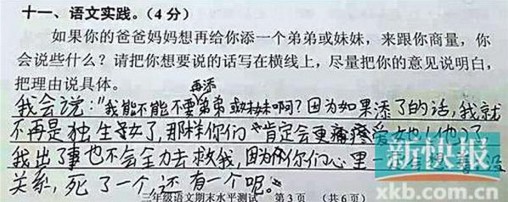 十一、语文实践。(4分)
如果你的爸爸妈妈想再给你添一个弟弟或妹妹，来跟你商量，你
会说些什么？请把你想要说的话写在横线上，尽量把你的意见说明白，
把理由说具体。
再添
我会说："我能不能不要弟弟或妹妹啊？因为如果添了的话，我就
不再是独生子女了，那样你们肯定会更疼爱她！(他)了，
我出了事也不会全力去救我，因为你们心里一
关系，死了一个，还有一个呢。"
三年级语文期末水平测试 第3页 (共6页)
新快报
xkb.com.cn